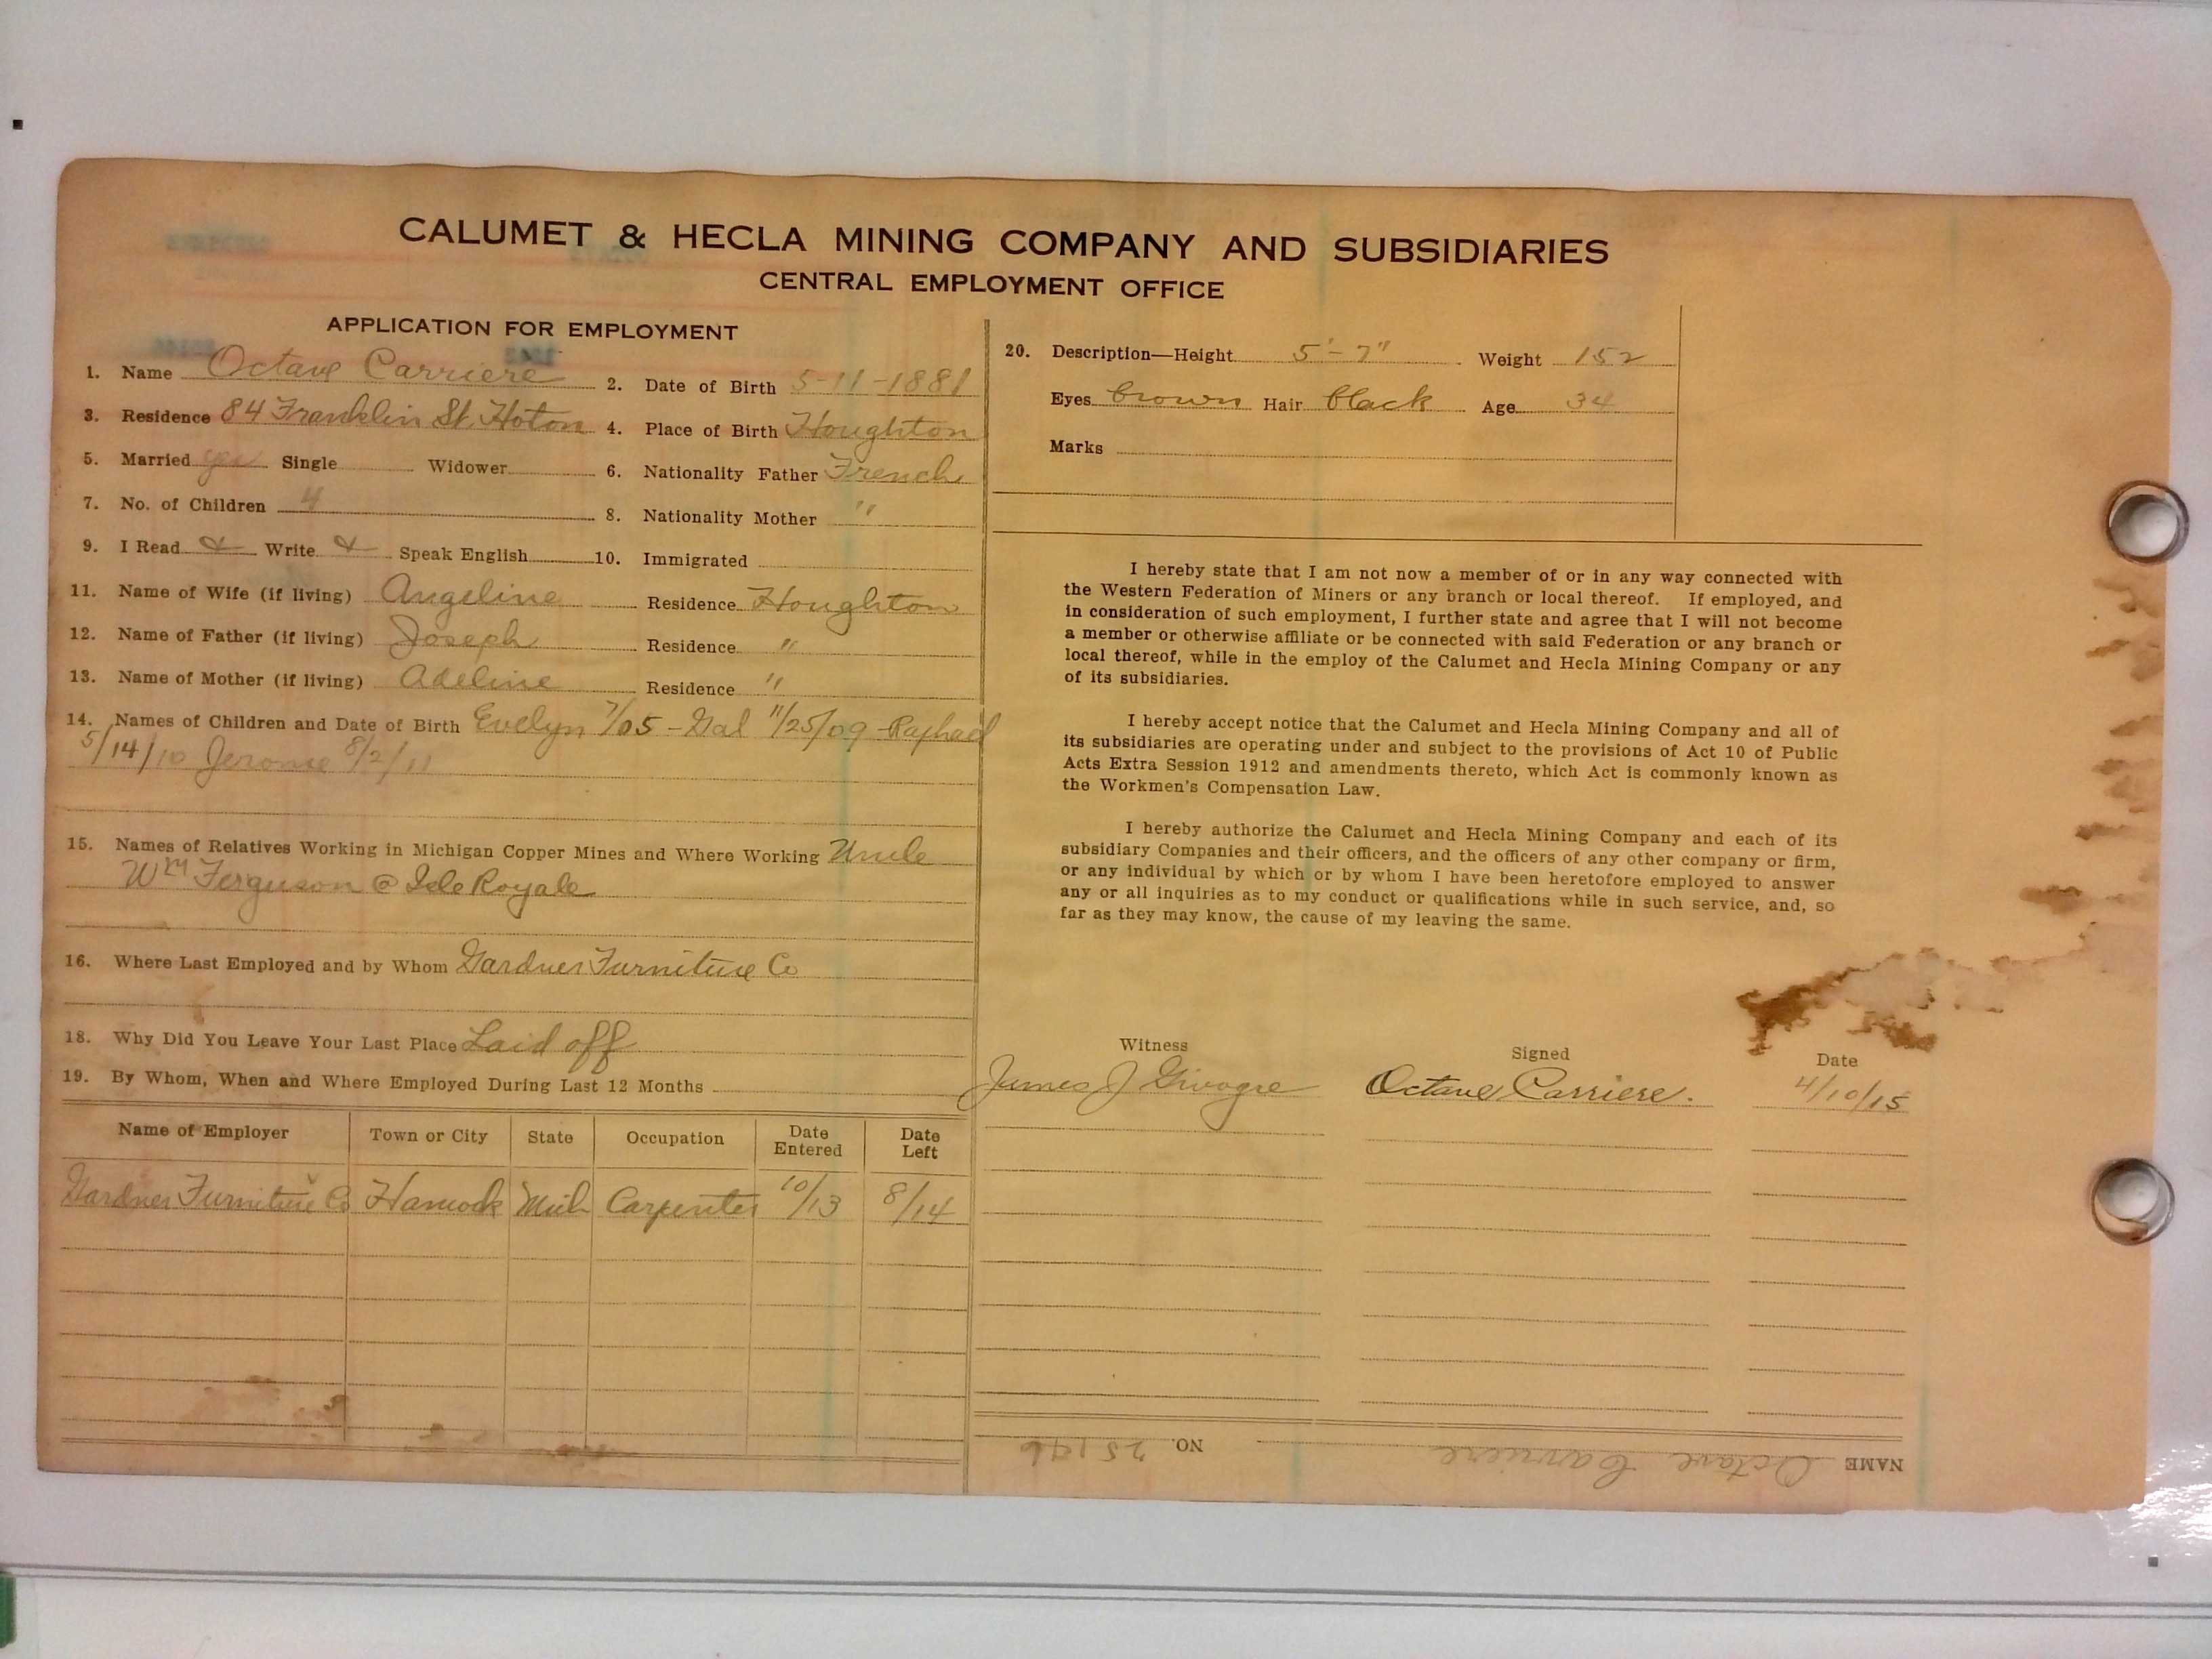 CALUMET & HECLA MINING COMPANY AND SUBSIDIARIES
CENTRAL EMPLOYMENT OFFICE
APPLICATION FOR EMPLOYMENT
1. Name Octave Carriere 2. Date of Birth 5-11-1881
3. Residence 84 Franklin St. Hoton 4. Place of Birth Houghton
5. Married yes Single Widower 6. Nationality Father French
7. No. of Children 4 8. Nationality Mother "
9. I Read & Write & Speak English 10. Immigrated
11. Name of Wife (if living) Angeline Residence Houghton
12. Name of Father (if living) Joseph Residence "
13. Name of Mother (if living) Adeline Residence "
14. Names of Children and Date of Birth Evelyn 7/05 - 11/25/09 - Raphael
5/14/10 Jerome 8/2/11
15. Names of Relatives Working in Michigan Copper Mines and Where Working Uncle
Wm Ferguson @ Isle Royale
16. Where Last Employed and by Whom Gardner Furniture Co
18. Why Did You Leave Your Last Place Laid off
19. By Whom, When and Where Employed During Last 12 Months
Name of Employer Town or City State Occupation Date Entered Date Left
Gardner Furniture Co Hancock Mich Carpenter 10/13 8/14
20. Description—Height 5'-7" Weight 152
Eyes brown Hair black Age 34
Marks
I hereby state that I am not now a member of or in any way connected with
the Western Federation of Miners or any branch or local thereof. If employed, and
in consideration of such employment, I further state and agree that I will not become
a member or otherwise affiliate or be connected with said Federation or any branch or
local thereof, while in the employ of the Calumet and Hecla Mining Company or any
of its subsidiaries.
I hereby accept notice that the Calumet and Hecla Mining Company and all of
its subsidiaries are operating under and subject to the provisions of Act 10 of Public
Acts Extra Session 1912 and amendments thereto, which Act is commonly known as
the Workmen's Compensation Law.
I hereby authorize the Calumet and Hecla Mining Company and each of its
subsidiary Companies and their officers, and the officers of any other company or firm,
or any individual by which or by whom I have been heretofore employed to answer
any or all inquiries as to my conduct or qualifications while in such service, and, so
far as they may know, the cause of my leaving the same.
Witness Signed Date
James J Octave Carriere. 4/10/15
NAME Octave Carriere NO. 25146